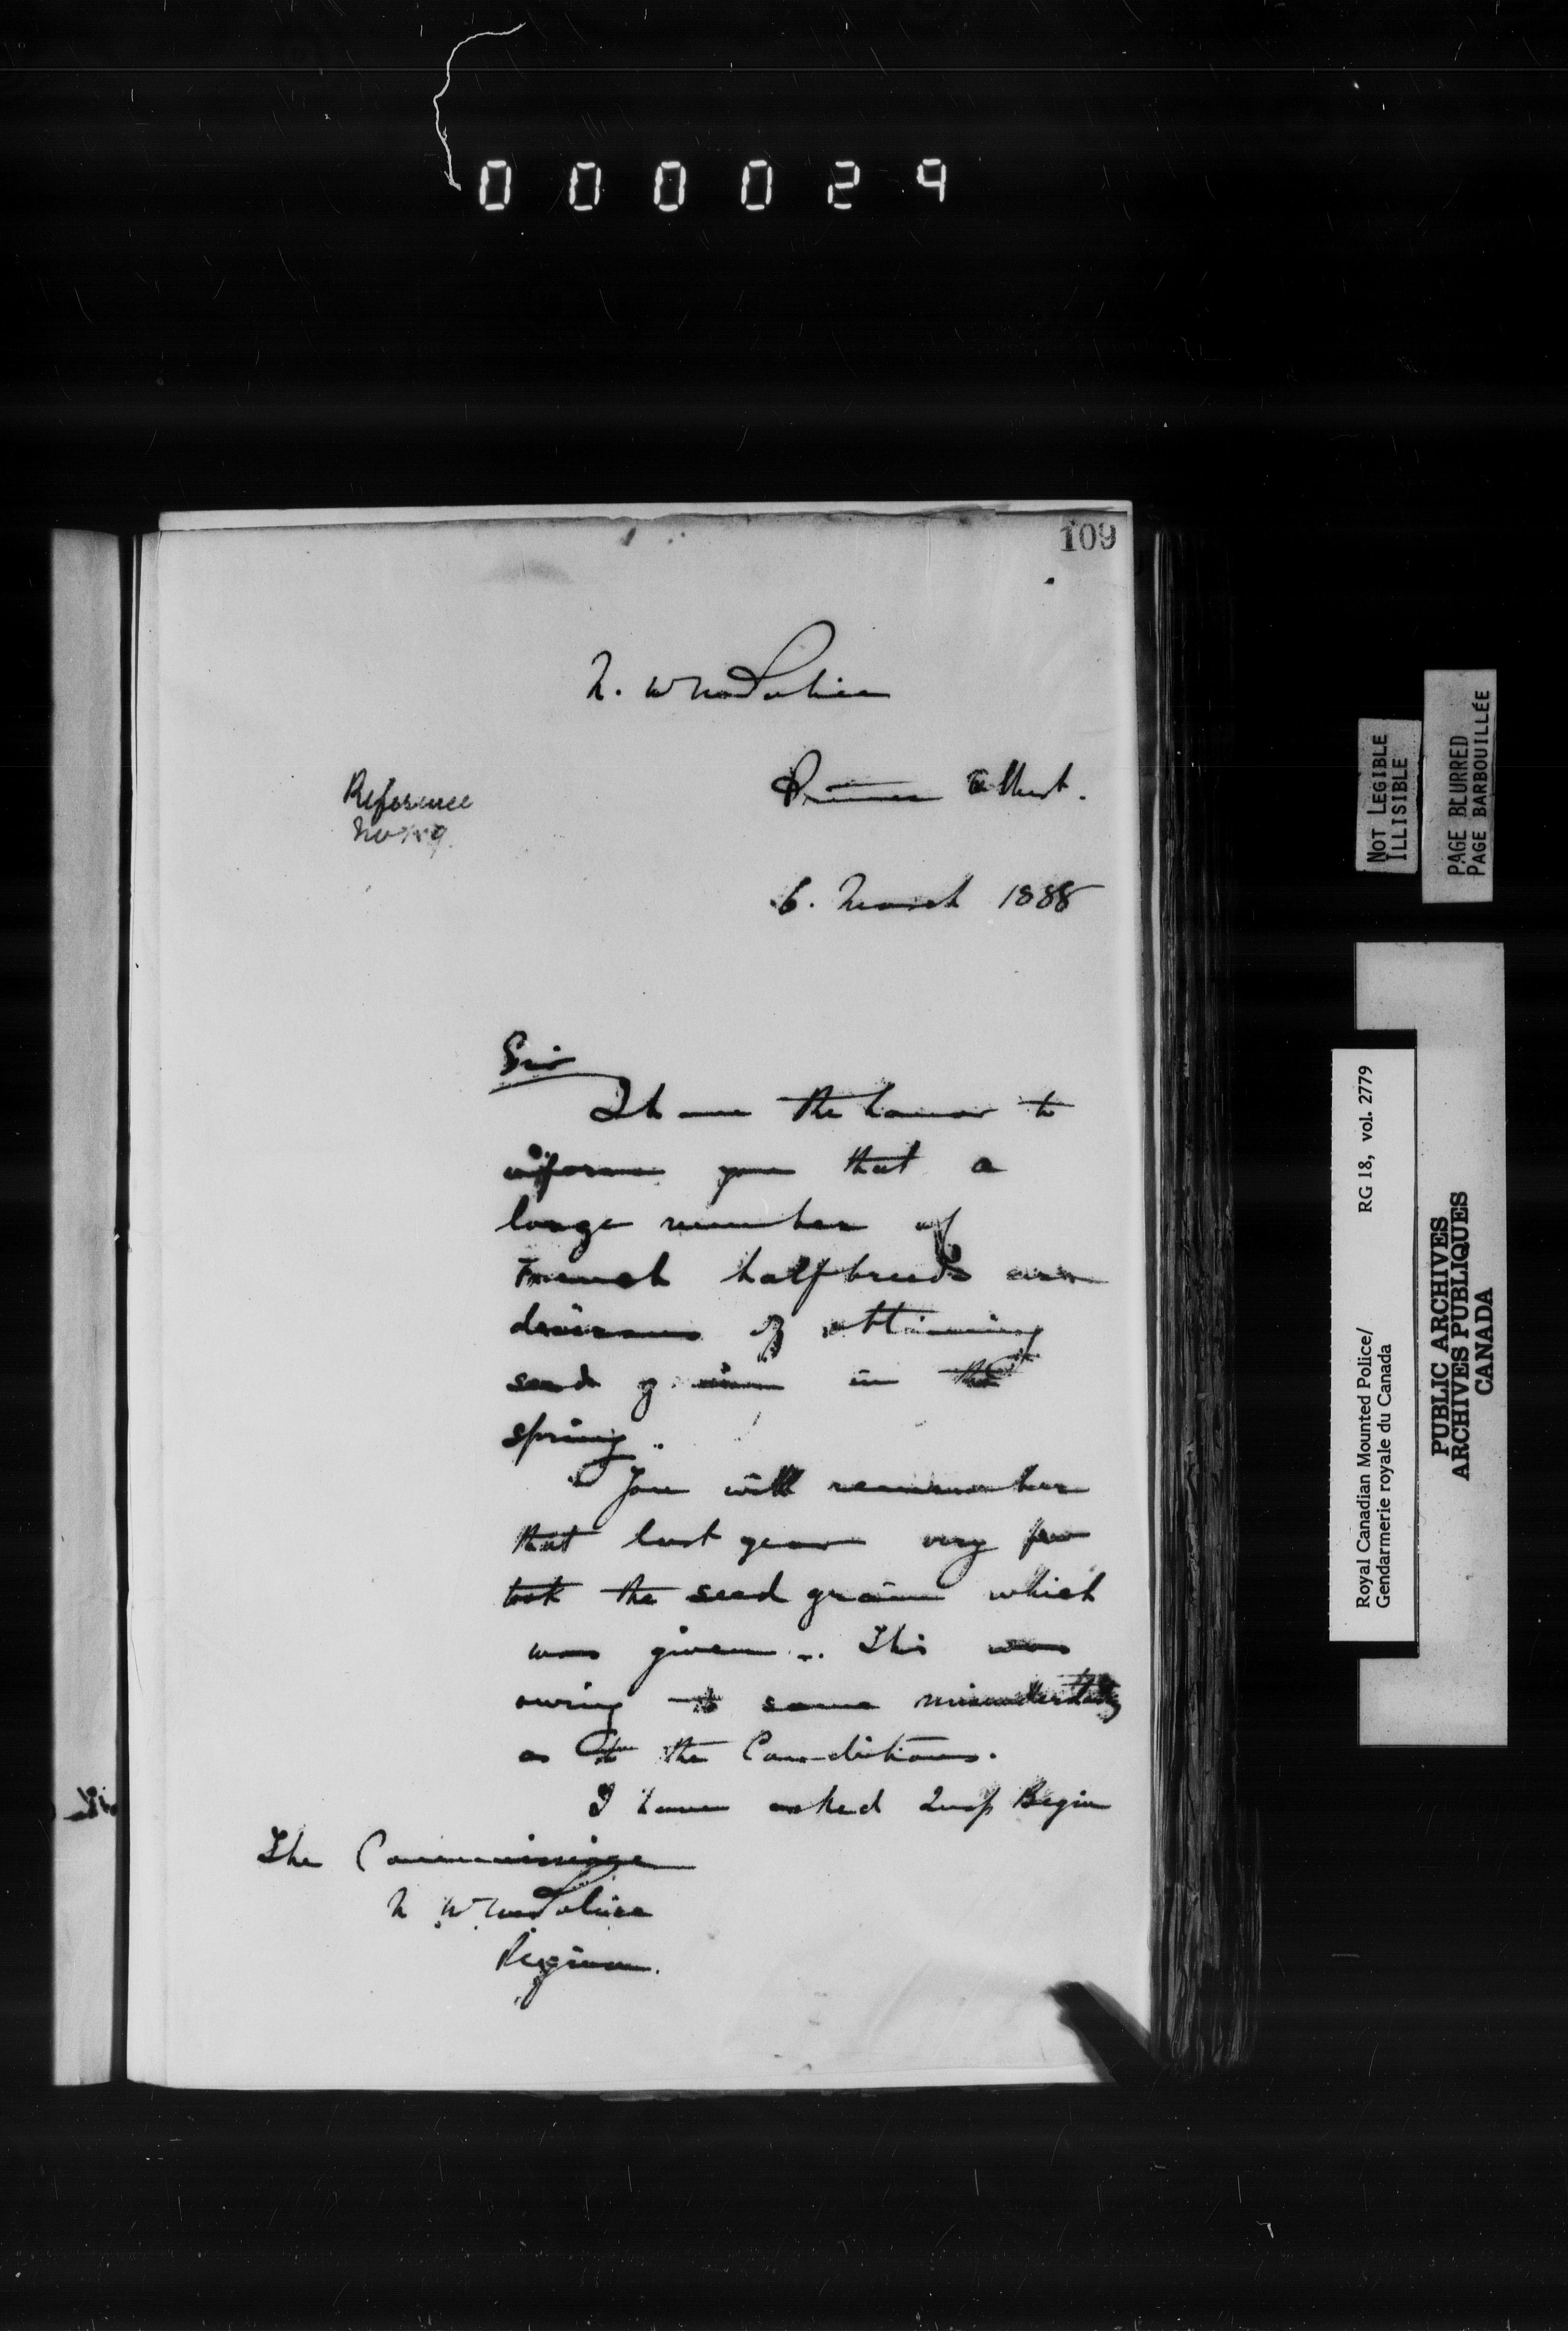 000029
109
N. W. M. Police
Reference
Prince Albert.
6. March 1888
Sir
I have the honor to
inform you that a
large number of
French halfbreeds are
desirous of obtaining
seed grain in the
spring.
You will remember
that last year very few
took the seed grain which
was given. This was
owing to some misunderstanding
as to the Conditions.
I have asked Insp Begin
The Commissioner
N W M Police
Regina.
NOT LEGIBLE
ILLISIBLE
PAGE BLURRED
PAGE BARBOUILLÉE
Royal Canadian Mounted Police/ RG 18, vol. 2779
Gendarmerie royale du Canada
PUBLIC ARCHIVES
ARCHIVES PUBLIQUES
CANADA